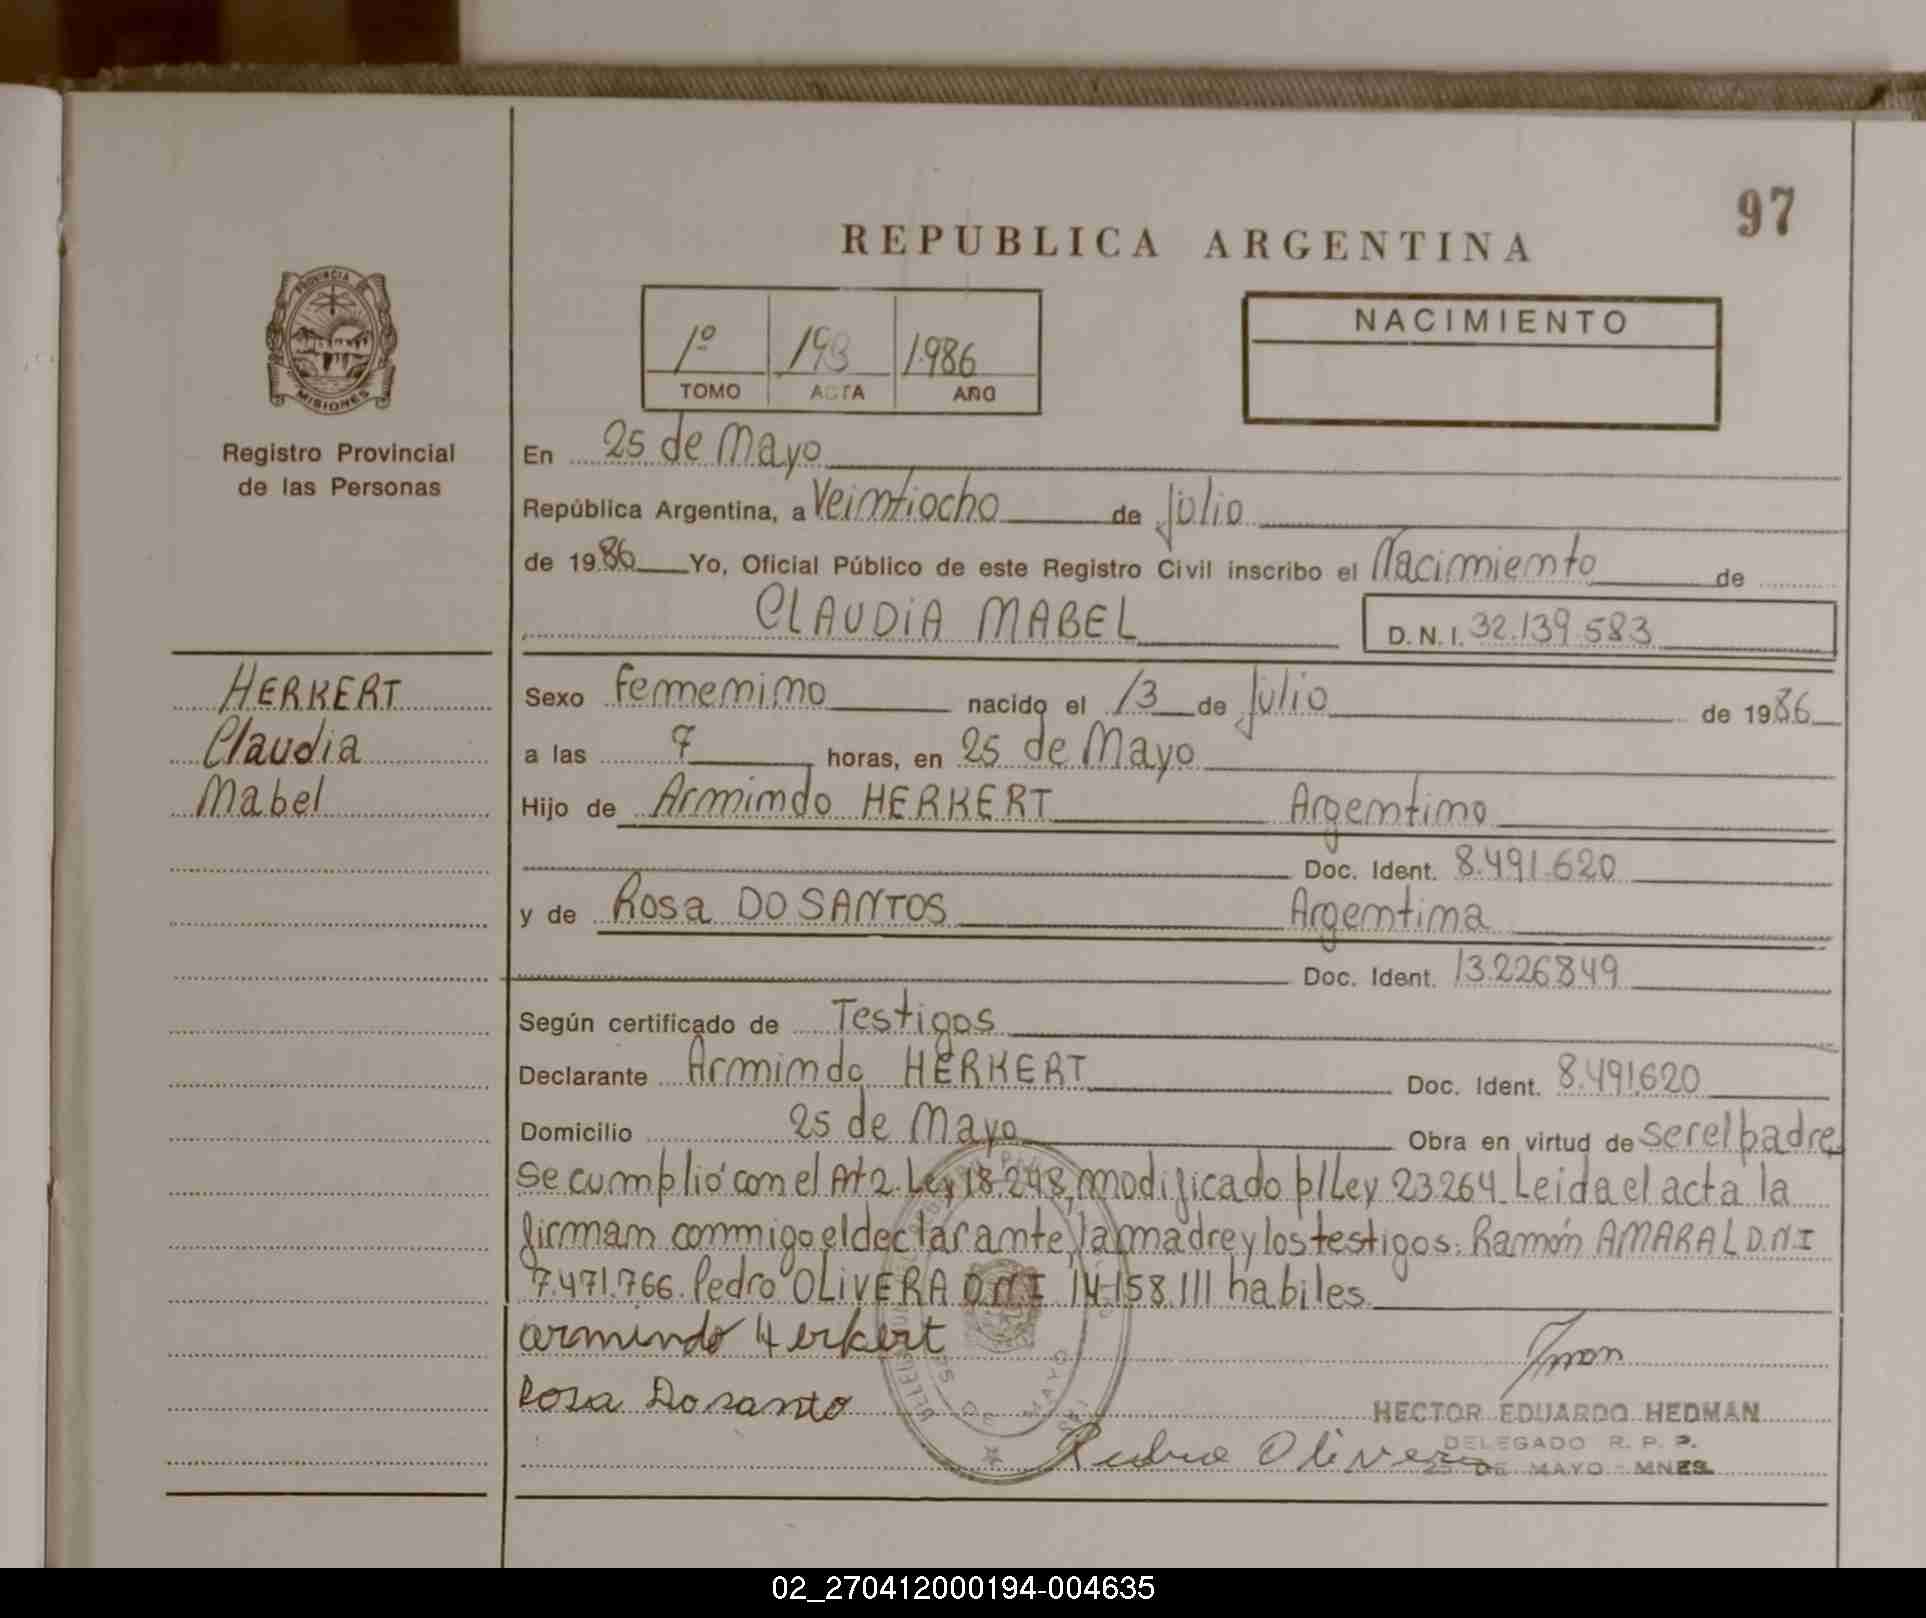 97
REPUBLICA ARGENTINA
PROVINCIA DE
MISIONES
1º 193 1.986
TOMO ACTA AÑO
NACIMIENTO
Registro Provincial
de las Personas
En 25 de Mayo
República Argentina, a Veintiocho de Julio
de 1986 Yo, Oficial Público de este Registro Civil inscribo el Nacimiento de
CLAUDIA MABEL D.N.I. 32.139.583
HERKERT
Claudia
Mabel
Sexo femenino nacido el 13 de Julio de 1986
a las 7 horas, en 25 de Mayo
Hijo de Armindo HERKERT Argentino
Doc. Ident. 8.491.620
y de Rosa DO SANTOS Argentina
Doc. Ident. 13.226849
Según certificado de Testigos
Declarante Armindo HERKERT Doc. Ident. 8.491620
Domicilio 25 de Mayo Obra en virtud de ser el padre
Se cumplió con el Art 2. Ley 18.248, modificado p/Ley 23264. Leida el acta la
firman conmigo el declarante, la madre y los testigos: Ramón AMARAL D.N.I
7.471.766. Pedro OLIVERA D.N.I 14.158.111 habiles.
armindo Herkert
Rosa Dosanto
HECTOR EDUARDO HEDMAN
DELEGADO R. P. P.
25 DE MAYO - MNES.
Olivera
25 DE MAYO
02_270412000194-004635